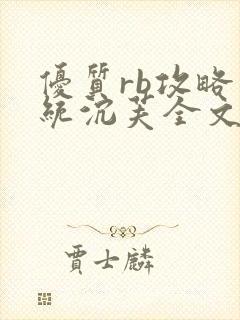 優質rb攻略
統沉芙全文
賈士麟